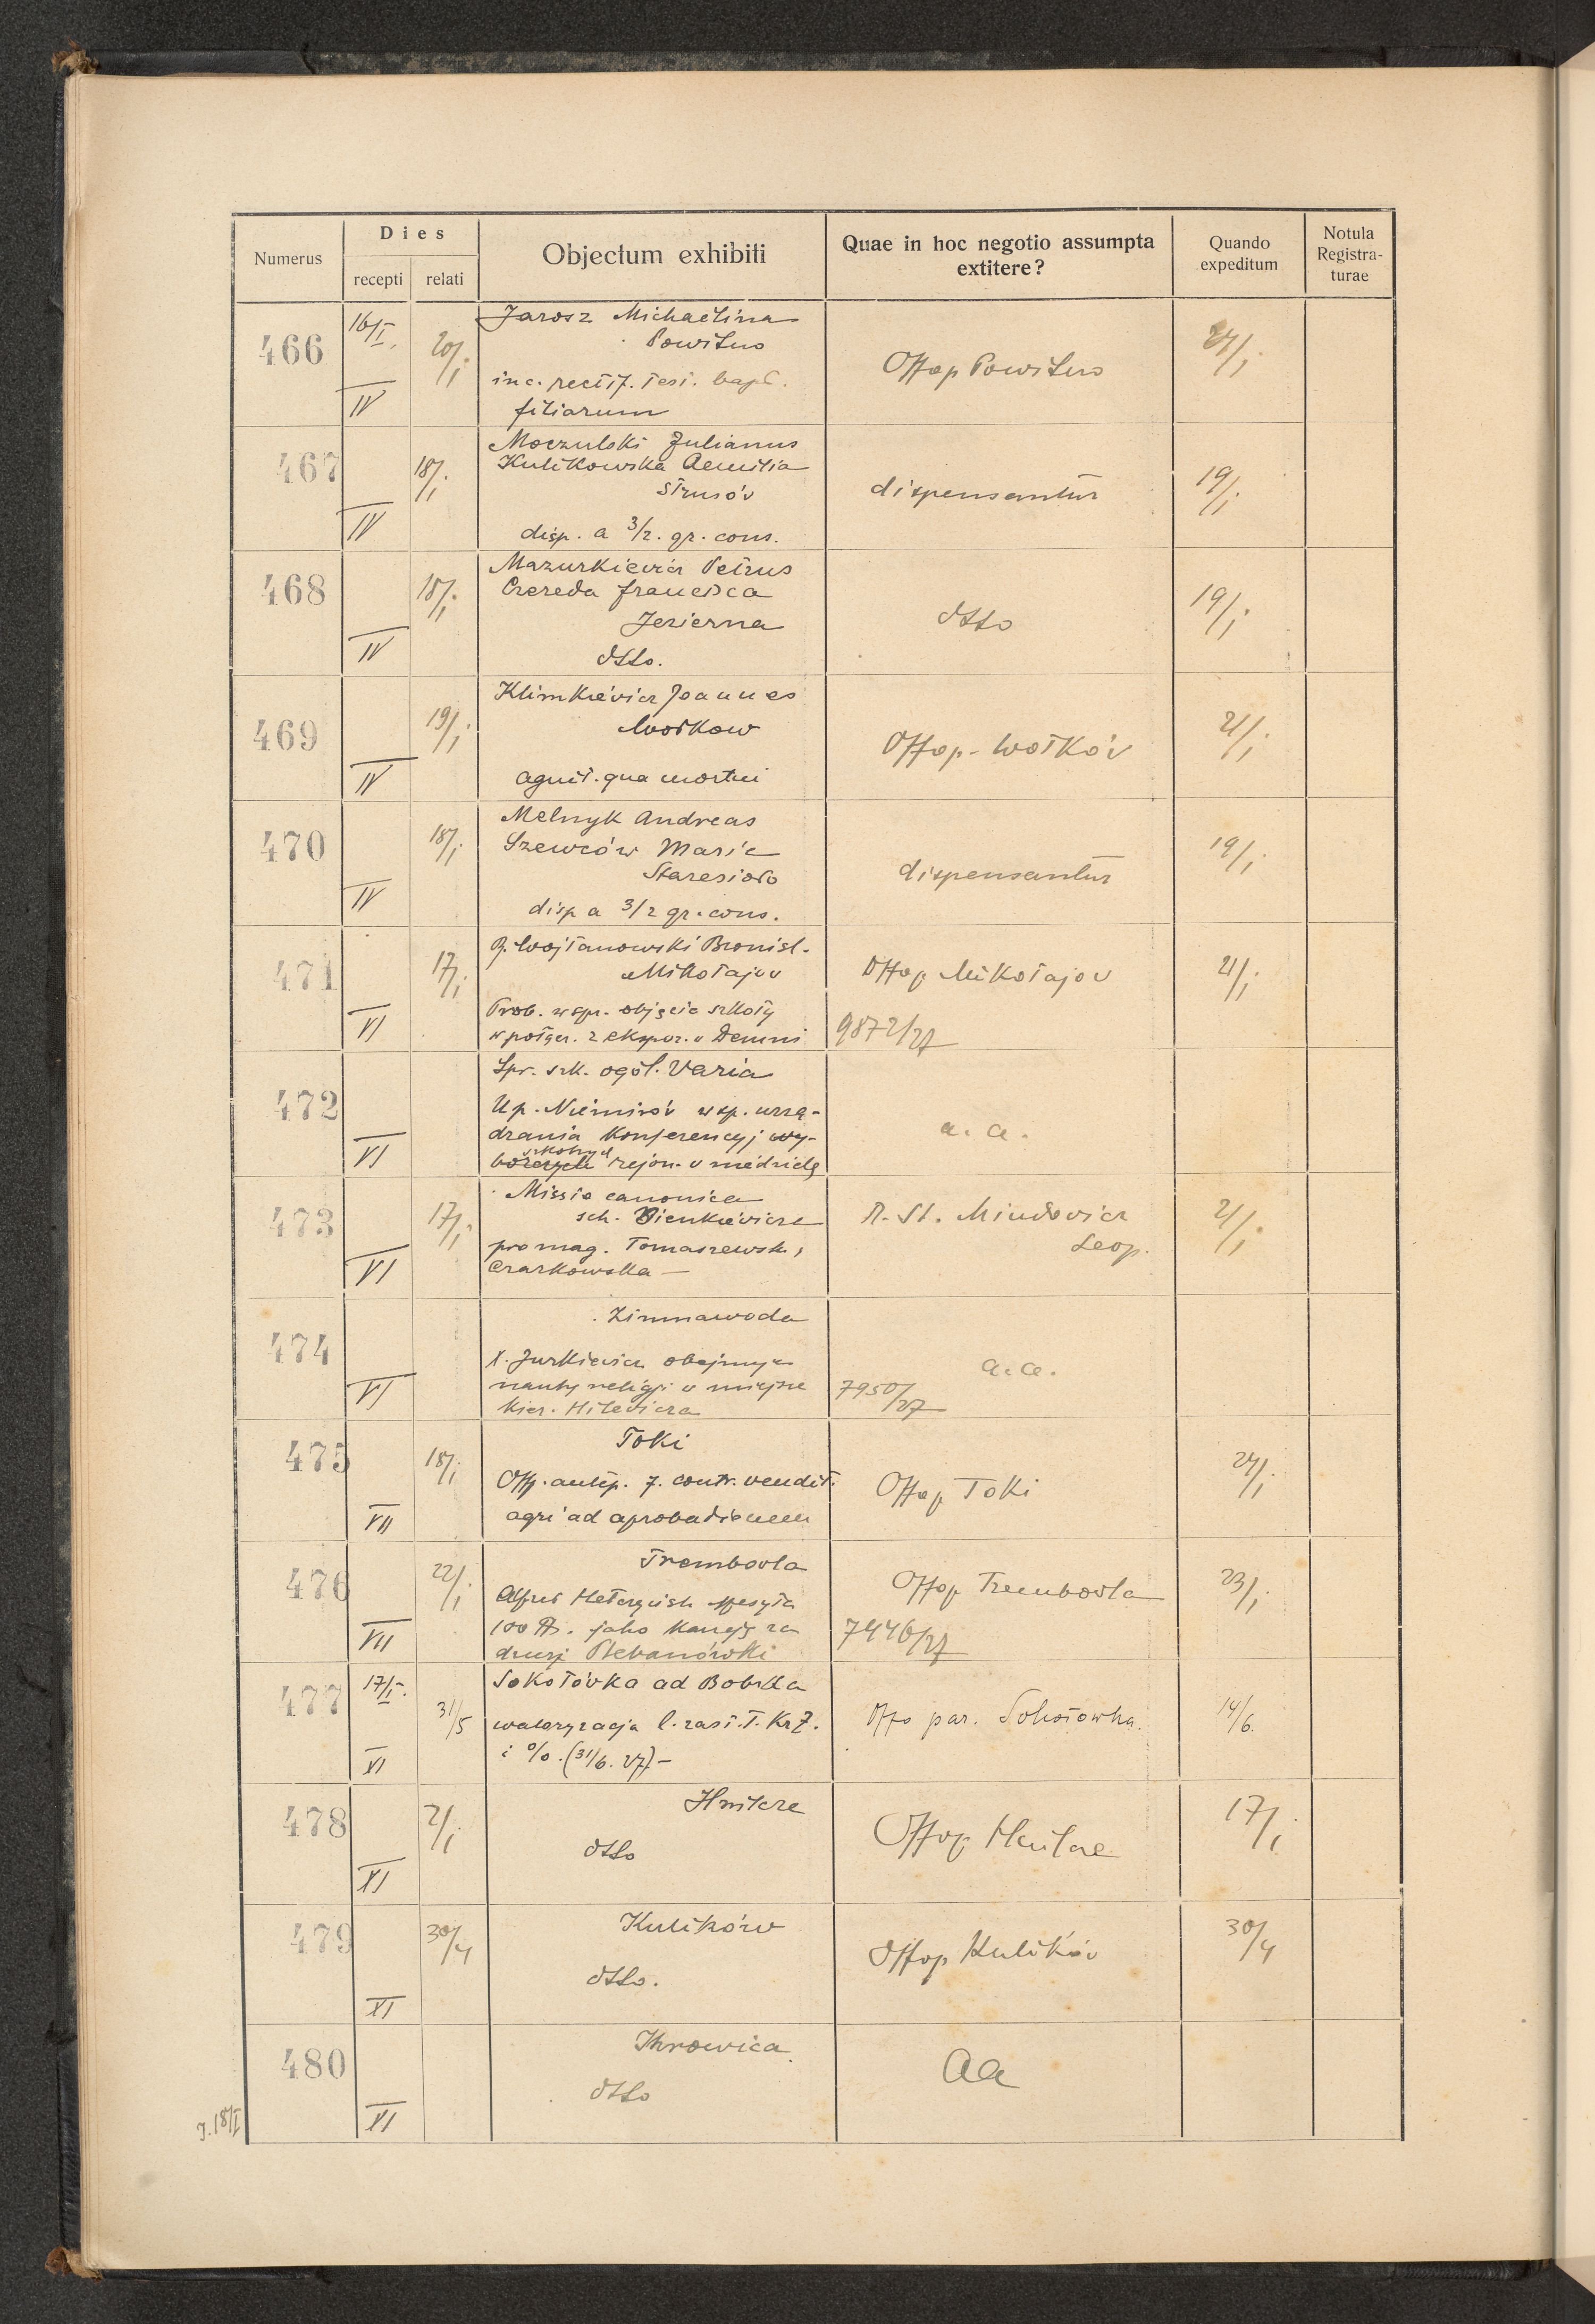 Numerus
Dies
recepti
relati
Objectum exhibiti
Quae in hoc negotio assumpta
extitere?
Quando
expeditum
Notula
Registra-
turae
466
16/I.
IV
20/I
Jarosz Michaelina
Powitno
inc. rectif. test. bapt.
filiarum
Offop Powitno
24/I
467
IV
18/I
Moczulski Julianus
Kulikowska Aemilia
Strusów
disp. a 3/2. gr. cons.
dispensantur
19/I
468
IV
18/I
Mazurkiewicz Petrus
Czereda Francisca
Jezierna
dtto.
dtto
19/I
469
IV
19/I
Klimkiewicz Joannes
Wołkow
agnit. qua mortui
Offop - Wołków
21/I
470
IV
18/I
Melnyk Andreas
Szewców Maria
Staresioło
disp a 3/2 gr. cons.
dispensantur
19/I
471
VI
17/I
Wojtanowski Bronisl.
Mikołajow
Prob. w spr. objęcia szkoły
w połger. z ekspoz. w Demni
Offop Mikołajow
9872/27
21/I
472
VI
Spr. szk. ogól. Varia
Up. Niemirów w sp. urzą-
dzania konferencyj wy-
szkolnych
borczych rejon. w niedzielę
a. a.
473
VI
17/I
Missio canonica
sch. Sienkiewicza
pro mag. Tomaszewsk,
Czarkowska —
R. St. Miudowicz
Leop.
21/I
474
VI
Zimnawoda
X. Jurkiewicz obejmuje
nauky religji w miejsce
kier. Hilewicza
a. a.
7950/27
475
VII
18/I
Toki
Off. antip. 7. contr. vendit.
agri ad aprobationem
Offop Toki
24/I
476
VII
22/I
Trembowla
100 jako kaucję za
Plebanówki
Offop Trembowla
7446/27
23/I
477
17/I.
XI
31/5
Sokołówka ad Bobrka
waloryzacja l. zast. T. Kr Z.
i %. (31/6. 27) —
Offo par. Sokołowka.
14/6.
478
XI
2/I
Hnilcze
dtto
Offop Hnilcze
17/I
479
XI
30/4
Kulików
dtto.
Offop Kulików
30/4
480
XI
Ihrowica
dtto
Aa
J. 18/I